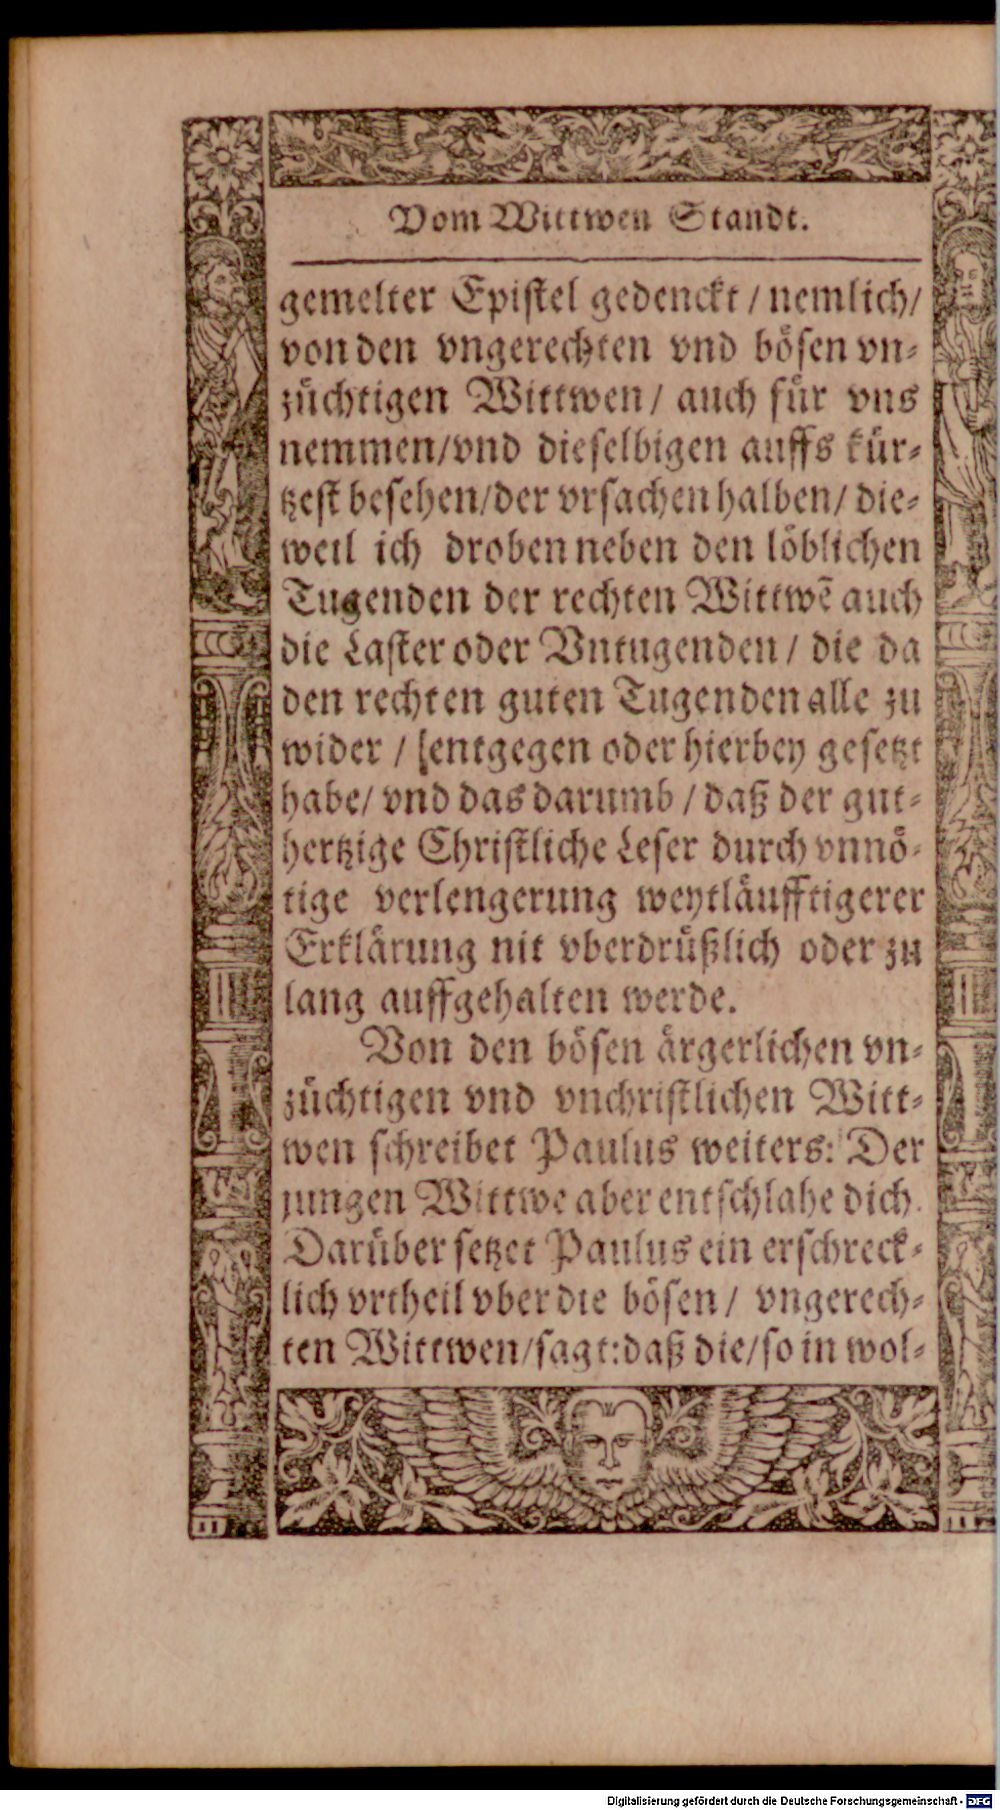 Vom Wittwen Standt.
gemelter Epistel gedenckt / nemlich/
von den vngerechten vnd bösen vn-
züchtigen Wittwen / auch für vns
nemmen/vnd dieselbigen auffs kür-
tzest besehen/der vrsachen halben/ die-
weil ich droben neben den löblichen
Tugenden der rechten Wittwē auch
die Laster oder Vntugenden / die da
den rechten guten Tugenden alle zu
wider / [entgegen oder hierbey gesetzt
habe/ vnd das darumb / daß der gut-
hertzige Christliche Leser durch vnnö-
tige verlengerung weytläufftigerer
Erklärung nit vberdrüßlich oder zu
lang auffgehalten werde.
Von den bösen ärgerlichen vn-
züchtigen vnd vnchristlichen Witt-
wen schreibet Paulus weiters: Der
jungen Wittwe aber entschlahe dich.
Darüber setzet Paulus ein erschreck-
lich vrtheil vber die bösen / vngerech-
ten Wittwen/sagt:daß die/so in wol-
Digitalisierung gefördert durch die Deutsche Forschungsgemeinschaft - DFG